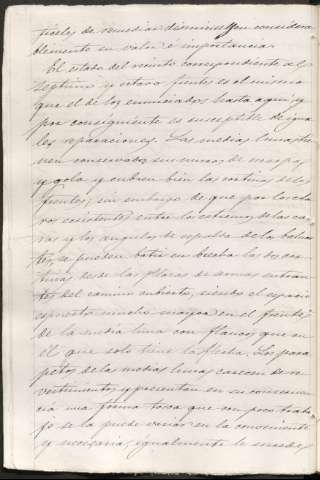 ficiles de remediar disminuyen considera
blemente su valor é importancia.
El estado del recinto correspondiente al
septimo y octavo frentes es el mismo
que el de los enunciados hasta aquí, y
por consiguiente es susceptible de igua
les reparaciones. Las medias lunas, tie
nen conservados sus muros de escarpa
y gola y cubren bien las cortinas de los
frentes, sin embargo de que por los cla
ros existentes entre los estremos de las ca
ras y los angulos de espalda de los baluar
tes, se pueden batir en brecha las dos cor
tinas desde las plazas de armas entran
tes del camino cubierto, siendo el espacio
espuesto mucho mayor en el frente
de la media luna con flancos, que en
el que solo tiene la flecha. Los para
petos de las medias lunas carecen de re
vestimientos y presentan en su consecuen
cia una forma tosca que con poco traba
jo se la puede variar en la conveniente
y necesaria, igualmente le sucede,